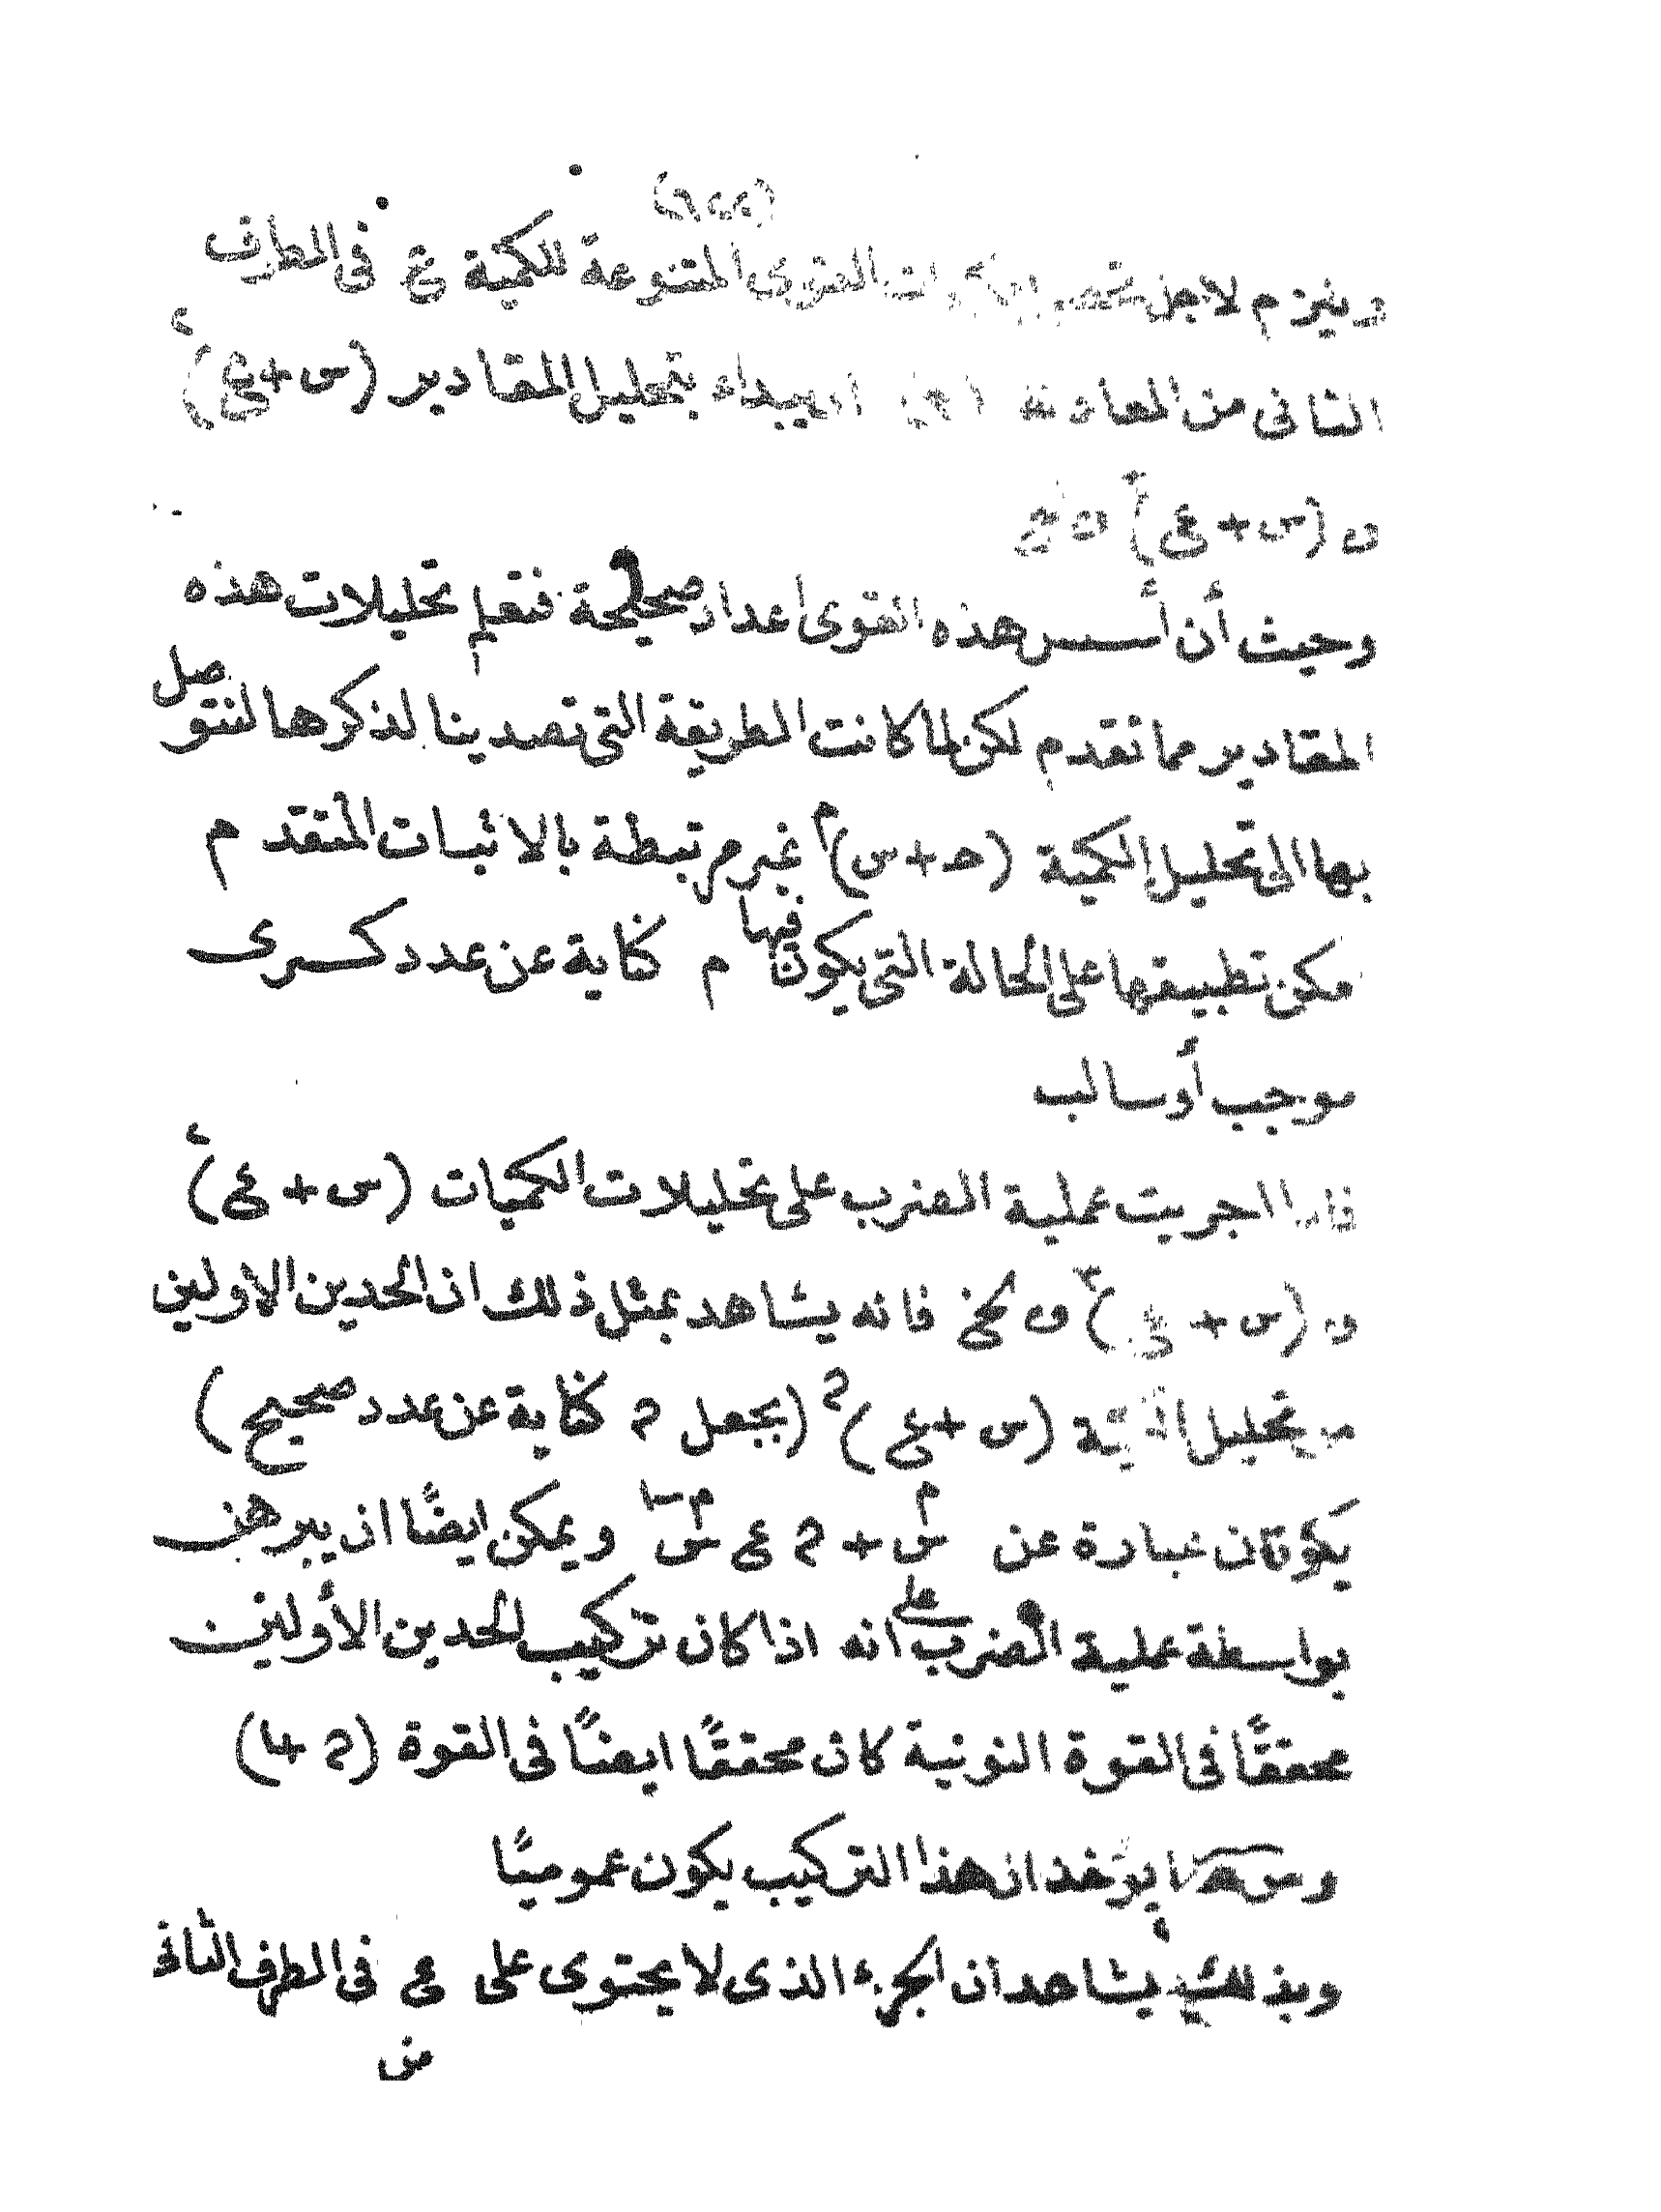 ويلزم لاجل القوى المتنوعة للكمية ع فى الطرف
الثانى من المعادلة يبداء بتحليل المقادير (س+ع)٢
و (س+ع)٣
وحيث أن أسس هذه القوى اعداد صحيحة فتعلم تحليلات هذه
المقادير مما تقدم لكن لما كانت الطريقة التى تصدينا لذكرها لنتوصل
بها الى تحليل الكمية (حـ+س)م غير مرتبطة بالاثبات المتقدم
مكن تطبيقها على الحالة التى يكون فيها م كناية عن عدد كسرى
موجب أو سالب
فاذا اجريت عملية الضرب على تحليلات الكميات (س+ع)٢
و (س+ع)٣ و فانه يشاهد بمثل ذلك ان الحدين الاولين
من تحليل الكمية (س+ع)م (بجعل م كناية عن عدد صحيح)
يكونان عبارة عن سم + م ع سم-١ ويمكن ايضًا ان يبرهن
بواسطة عملية الضرب على انه اذا كان تركيب الحدين الأولين
محققًا فى القوة النونية كان محققًا ايضًا فى القوة (م+١)
ومن هنا يؤخذ ان هذا التركيب يكون عموميًا
وبذلك يشاهد أن الجزء الذى لا يحتوى على ع فى الطرف الثانى
من